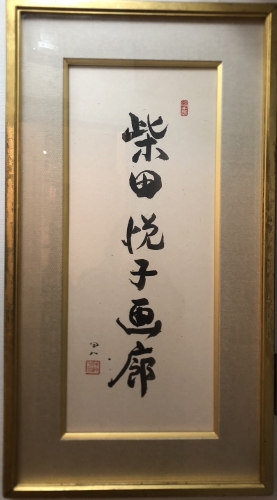 柴田悦子画廊